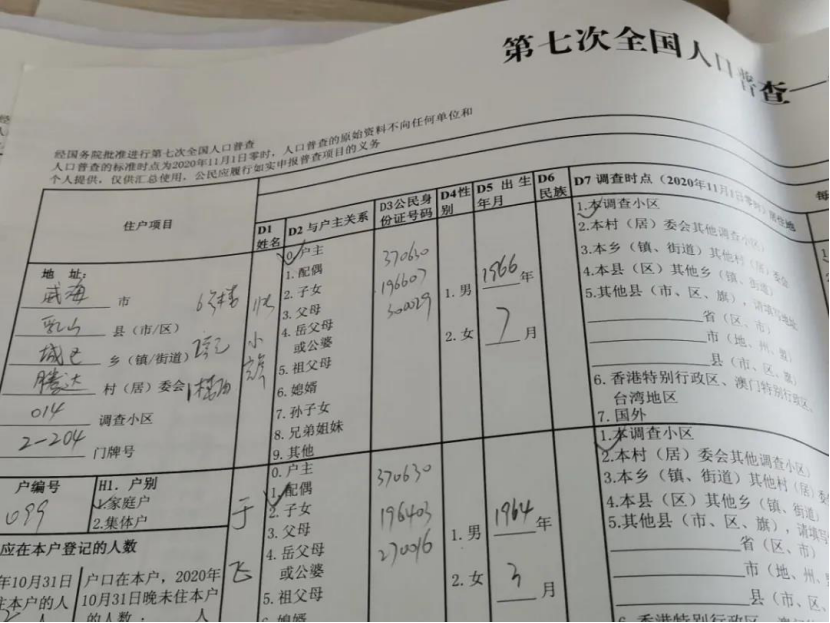 第七次全国人口普查—
经国务院批准进行第七次全国人口普查
人口普查的标准时点为2020年11月1日零时，人口普查的原始资料不向任何单位和
个人提供，仅供汇总使用，公民应履行如实申报普查项目的义务
住户项目
D1 姓名
D2 与户主关系
D3公民身份证号码
D4性别
D5 出生年月
D6 民族
D7 调查时点（2020年11月1日零时）居住地
每
地 址：
威海 市
6号楼
乳山 县（市/区）
城区 乡（镇/街道）
腾达 村（居）委会
014 调查小区
2-204 门牌号
小
0. 户主
1. 配偶
2. 子女
3. 父母
4. 岳父母
或公婆
5. 祖父母
6. 媳婿
7. 孙子女
8. 兄弟姐妹
9. 其他
370630
196607
300029
1. 男
2. 女
1966 年
7 月
1.本调查小区
2.本村（居）委会其他调查小区
3.本乡（镇、街道）其他村（居）委会
4.本县（区）其他乡（镇、街道）
5.其他县（市、区、旗），请填写地址
省（区、市）
市（地、州、盟）
县（市、区、旗）
6. 香港特别行政区、澳门特别行政区、
台湾地区
7. 国外
户编号
099
H1. 户别
1.家庭户
2.集体户
应在本户登记的人数
年10月31日
住本户的人
户口在本户，2020年
10月31日晚未住本户
的人数： 人
于
飞
0. 户主
1. 配偶
2. 子女
3. 父母
4. 岳父母
或公婆
5. 祖父母
媳婿
370630
196403
270016
1. 男
2. 女
1964 年
3 月
1.本调查小区
2.本村（居）委会其他调查小区
3.本乡（镇、街道）其他村（居）委
4.本县（区）其他乡（镇、街道）
5.其他县（市、区、旗），请填写
省（区、市）
市（地、州、
县（市、区、
6. 香港特别行政区、澳门